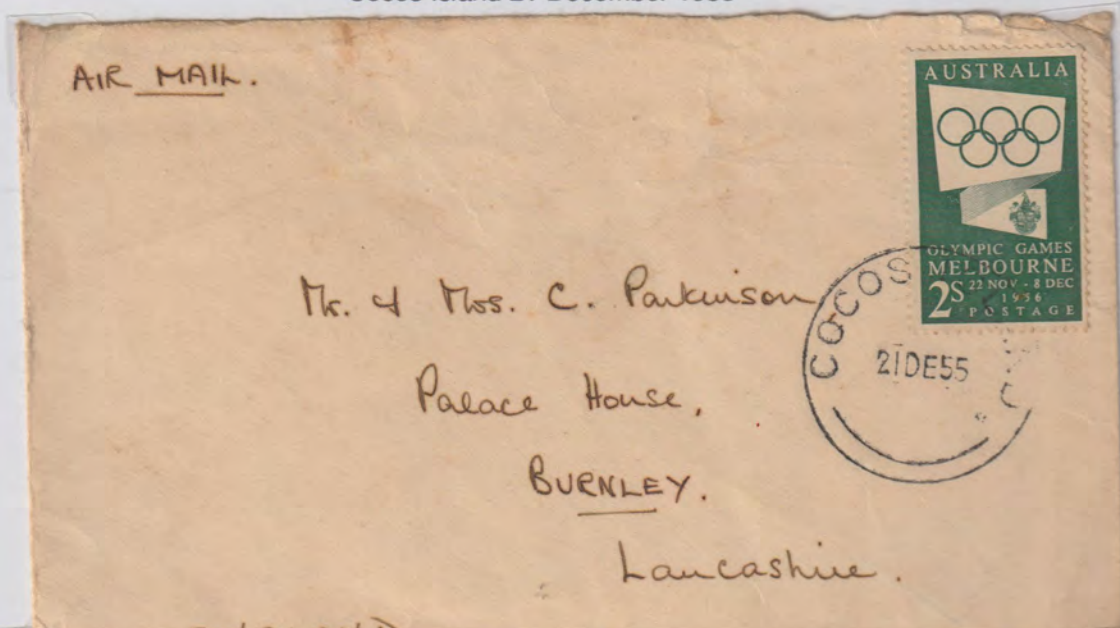 AIR MAIL.
AUSTRALIA
OLYMPIC GAMES
MELBOURNE
2S 22 NOV - 8 DEC
1956
POSTAGE
COCOS
21DE55
Mr. & Mrs. C. Parkinson
Palace House,
BURNLEY.
Lancashire.